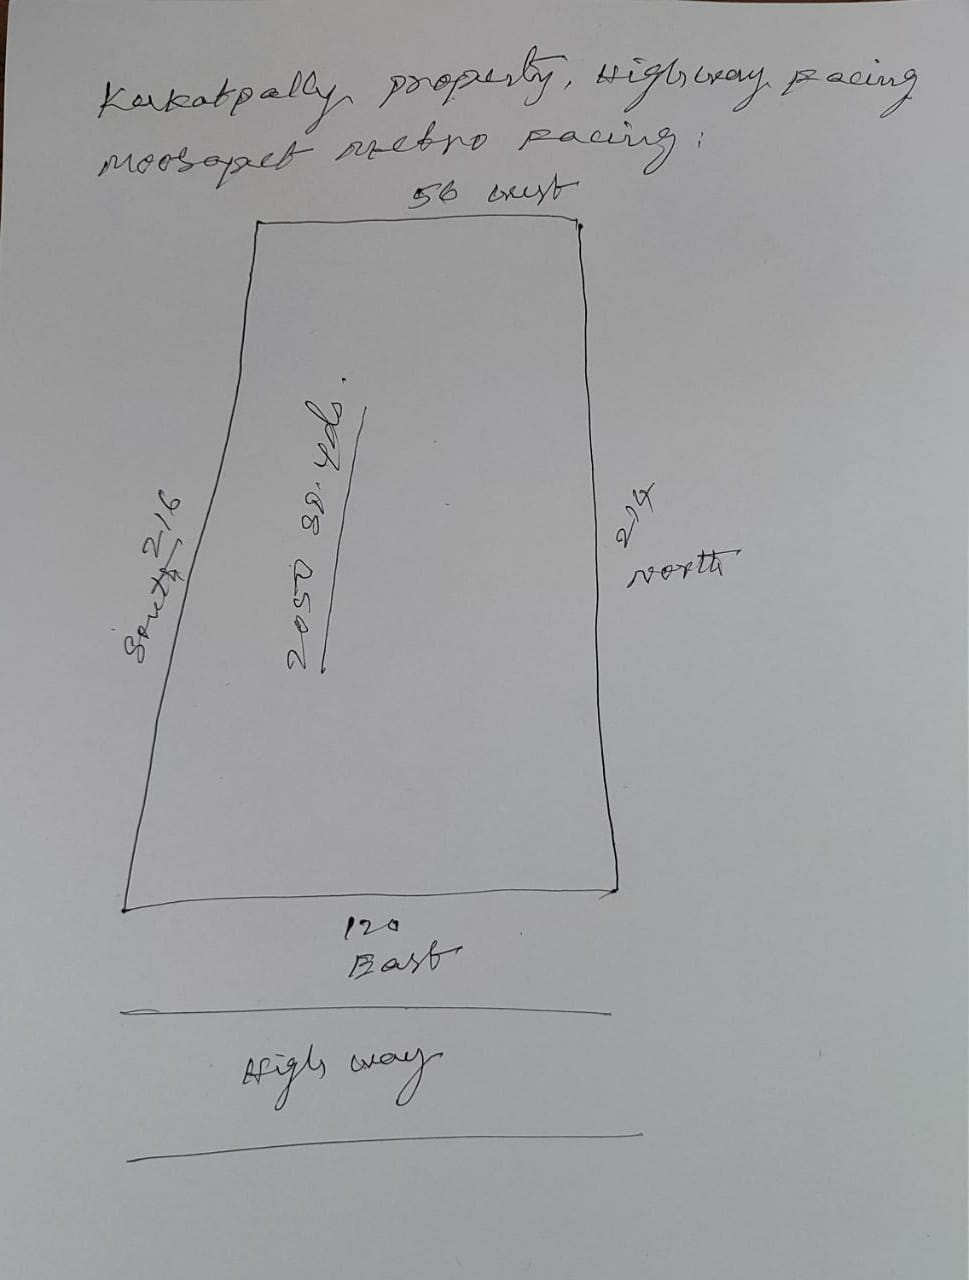 Kukatpally property, Highway Facing
Moosapet Metro Facing:
56 West
South 216
2050 SQ. Yds.
214
North
120
East
High way